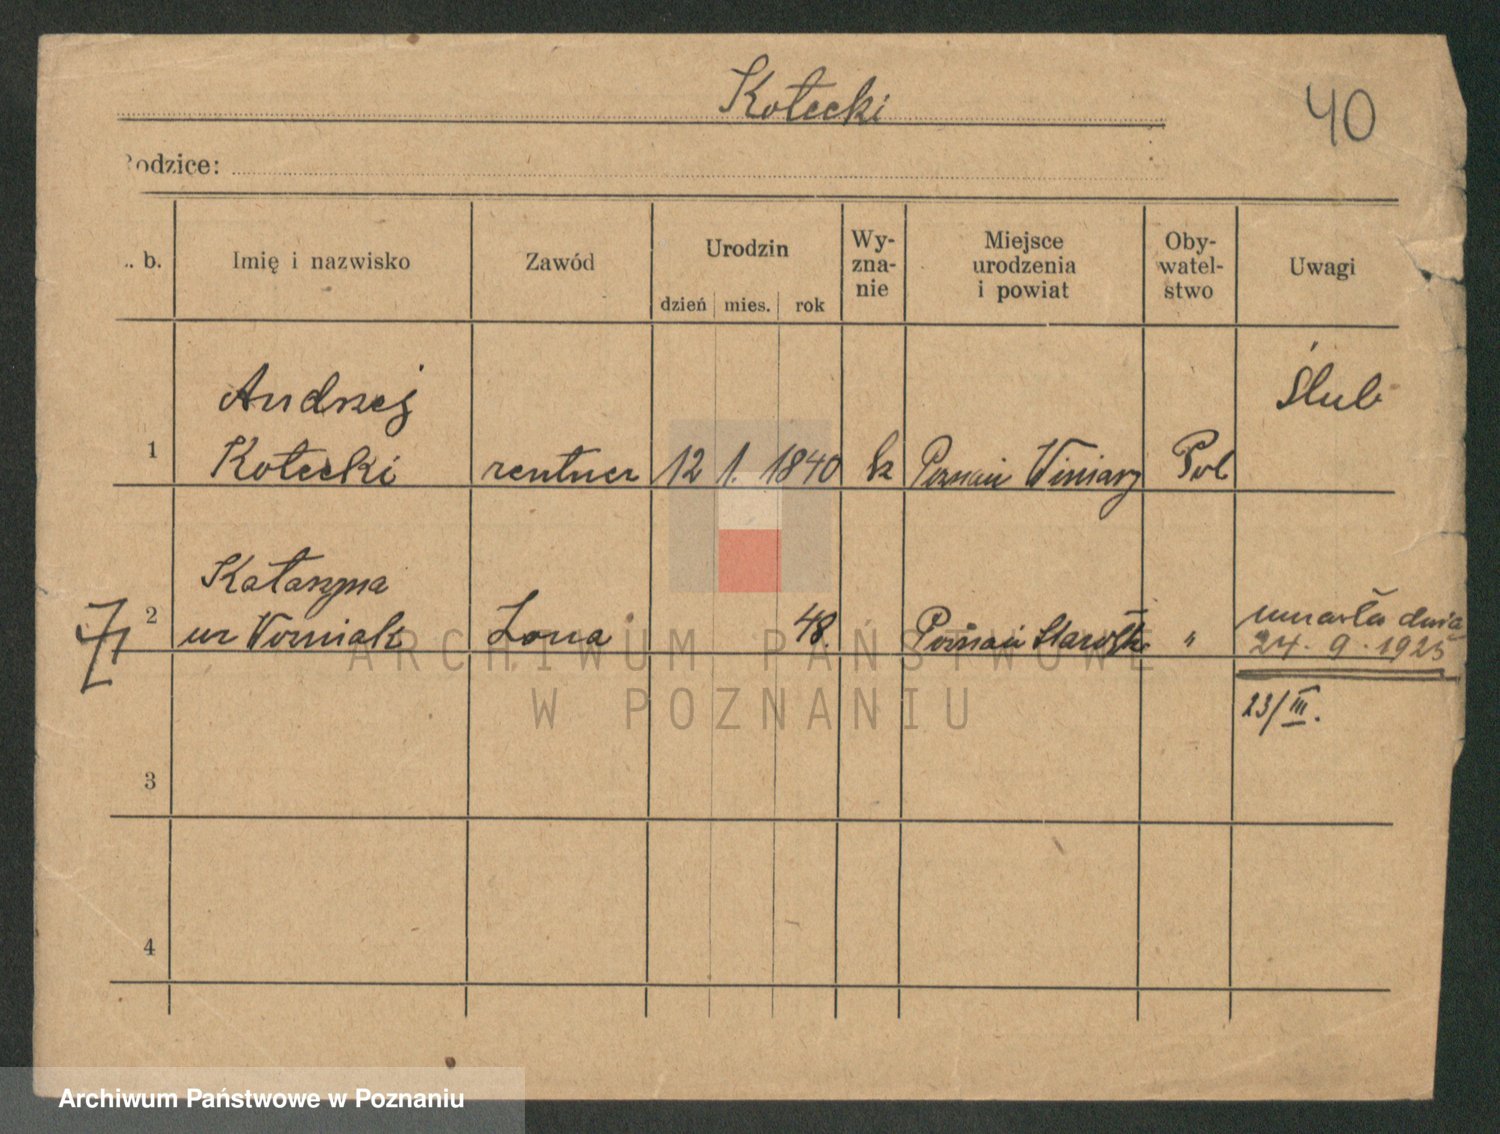 Kotecki
40
Rodzice:
L. b. Imię i nazwisko Zawód Urodzin dzień mies. rok Wy- zna- nie Miejsce urodzenia i powiat Oby- watel- stwo Uwagi
Andrzej Ślub
1 Kotecki rentner 12 1. 1840 k Poznań Winiary Pol
Katarzyna
2 ur Woźniak Żona 48. Poznań " umarła dnia
24. 9. 1925
23/III.
3
4
ARCHIWUM PAŃSTWOWE
W POZNANIU
Archiwum Państwowe w Poznaniu